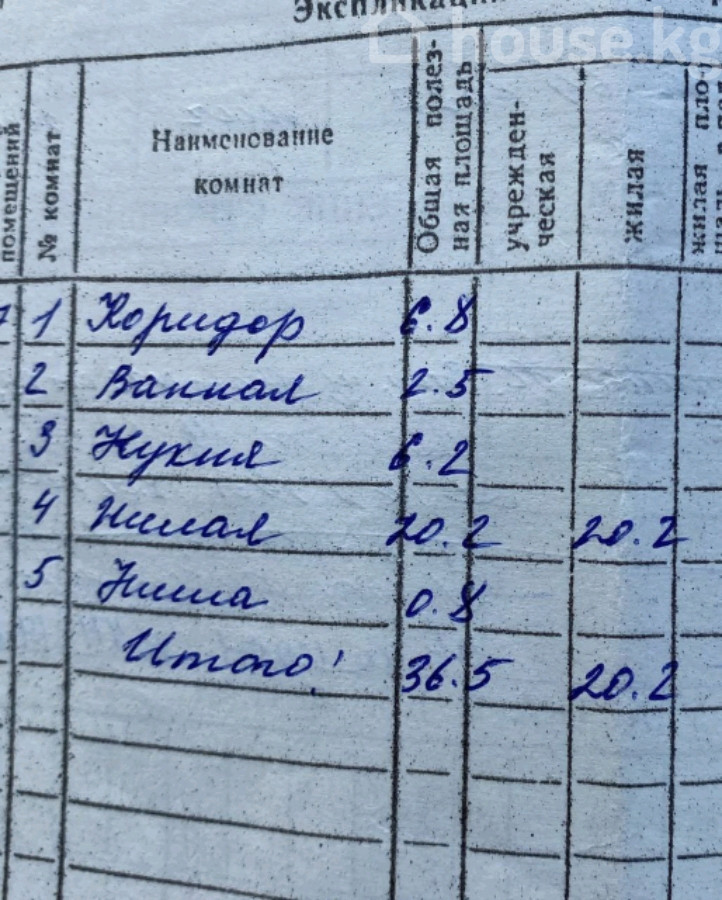 Экспликаци
house.kg
помещений
№ комнат
Наименование
комнат
Общая полез-
ная площадь
учрежден-
ческая
жилая
жилая пло-
1 Коридор 6.8
2 Ванная 2.5
3 Кухня 6.2
4 Жилая 20.2 20.2
5 Ниша 0.8
Итого: 36.5 20.2